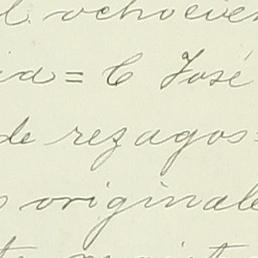 ochocien
ia = C José
de rezagos =
s originale